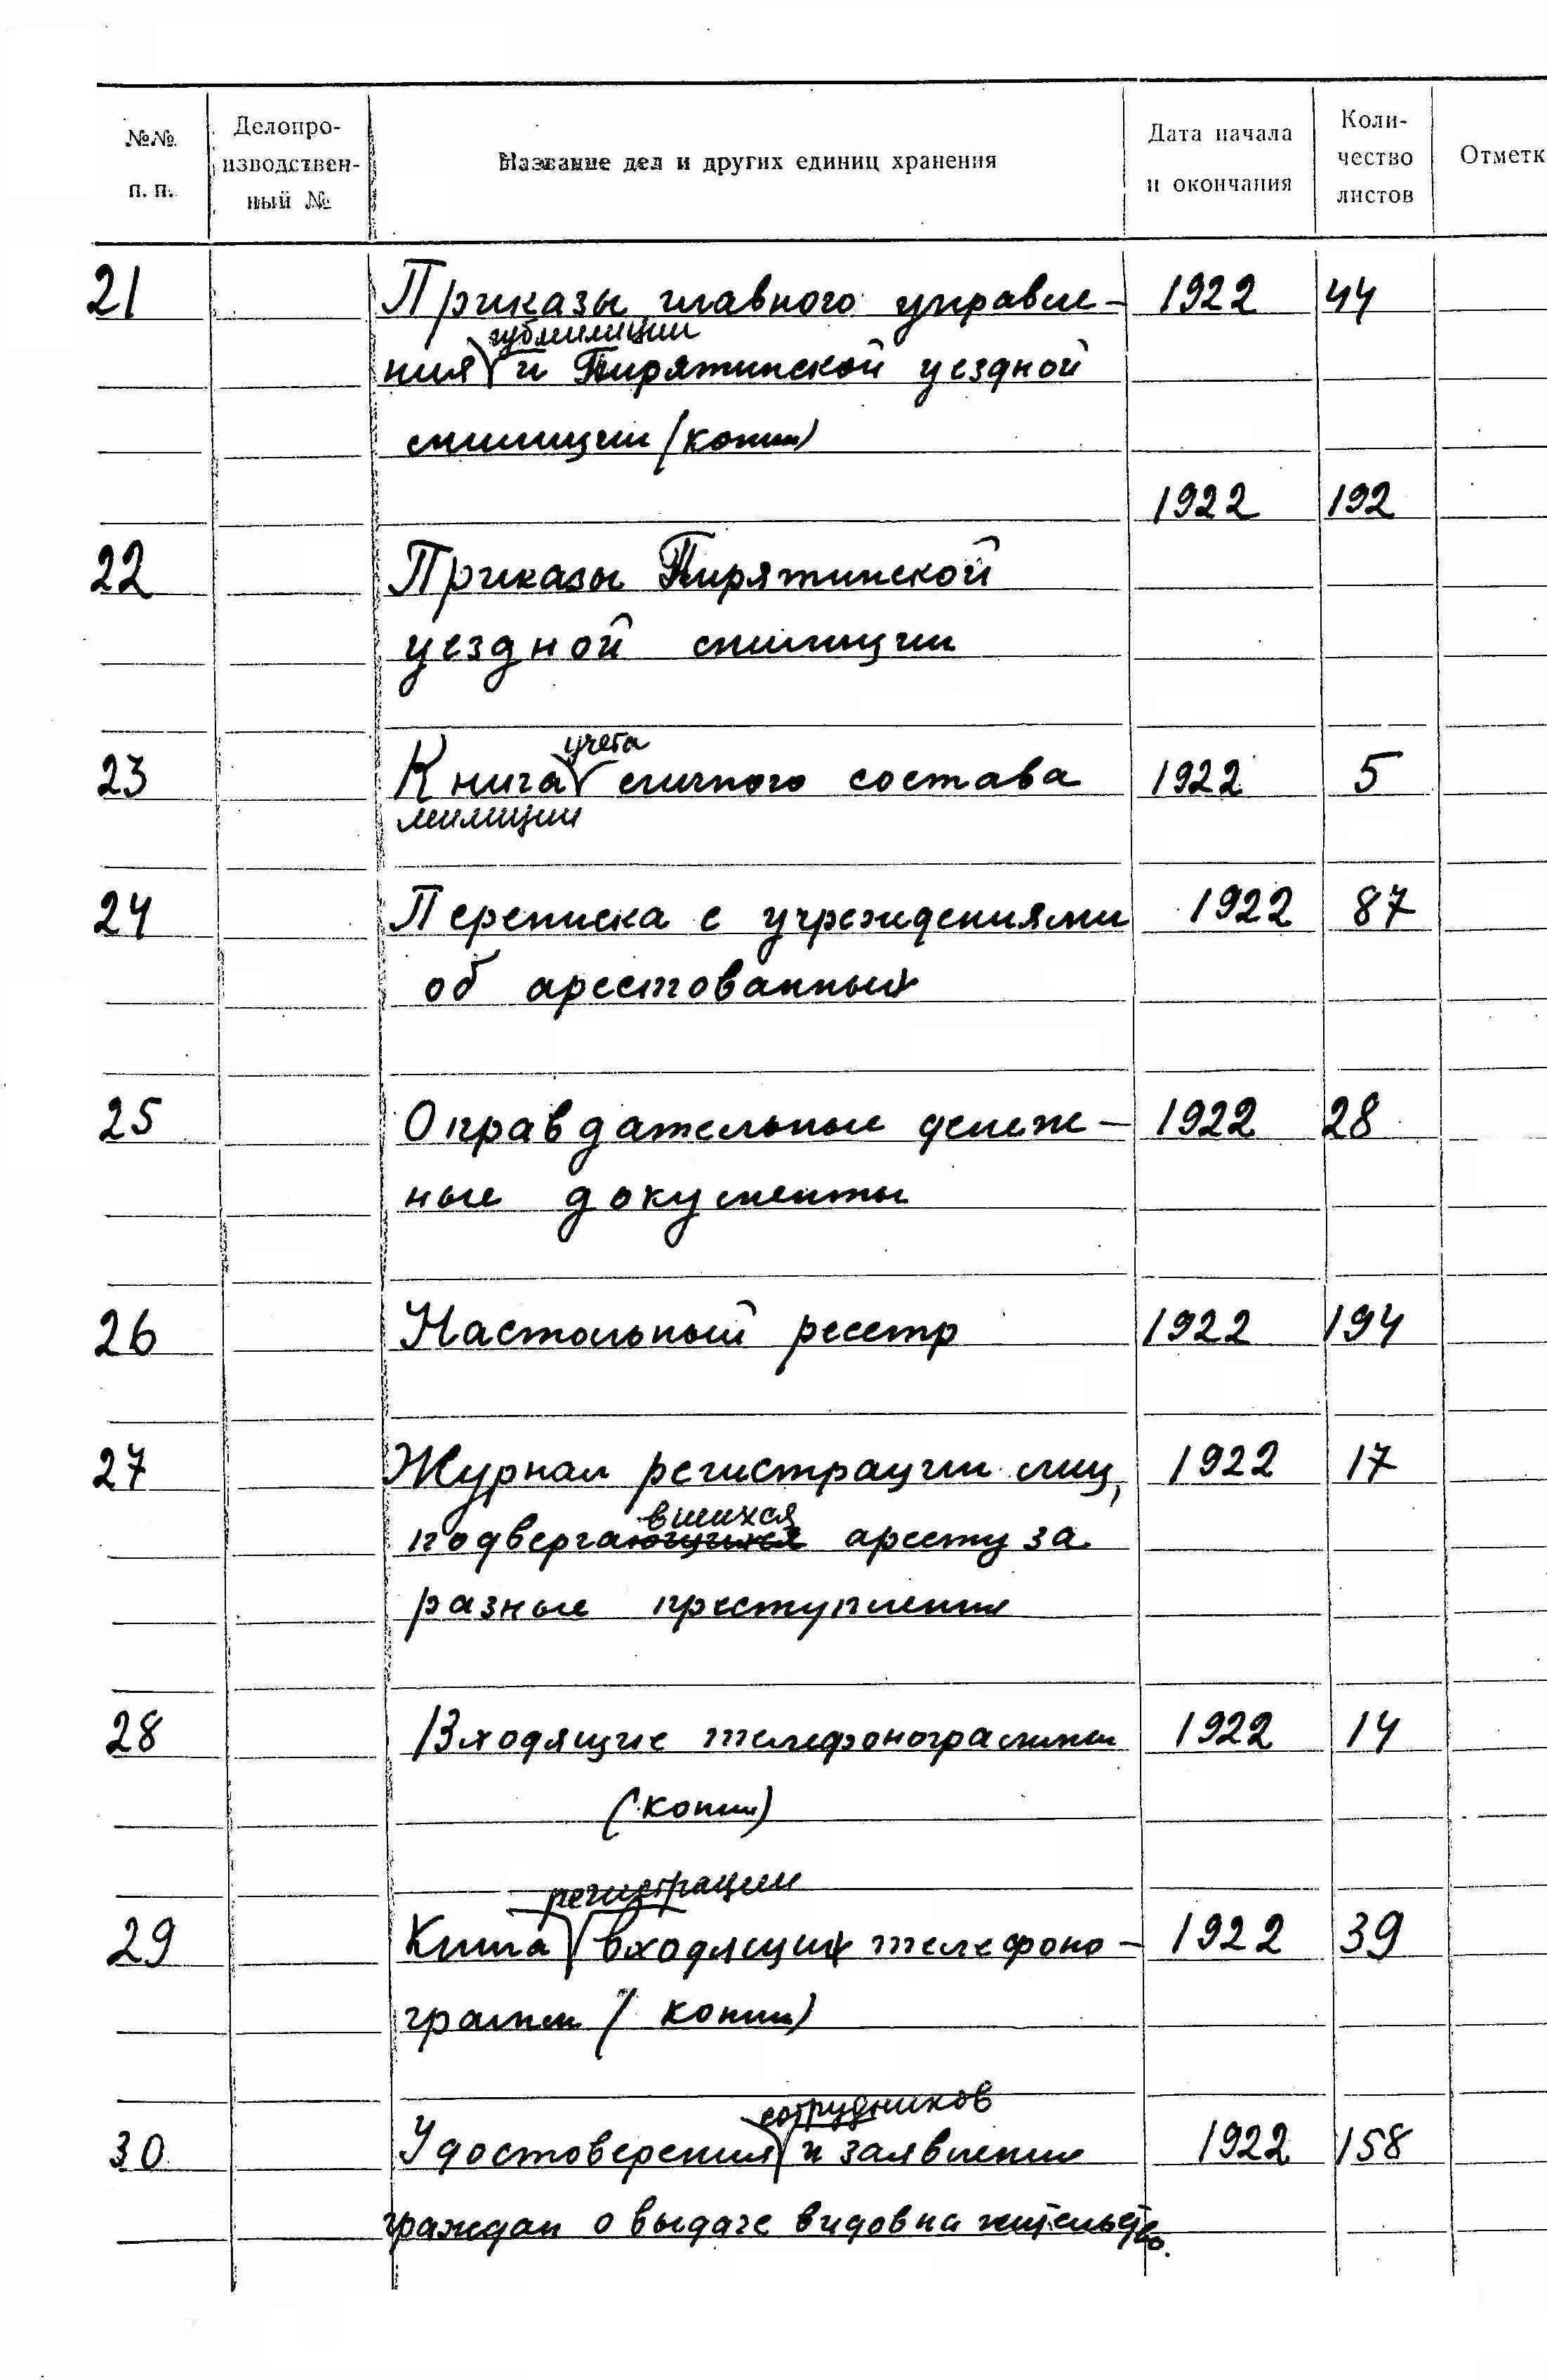 №№ п. п. Делопро-изводствен-ный № Название дел и других единиц хранения Дата начала и окончания Коли-чество листов Отметк
21 Приказы главного управле- 1922 44
губмилиции
ния и Пирятинской уездной
милиции (копии)
1922 192
22 Приказы Пирятинской
уездной милиции
учета
23 Книга личного состава 1922 5
милиции
24 Переписка с учреждениями 1922 87
об арестованных
25 Оправдательные денеж- 1922 28
ные документы
26 Настольный реестр 1922 194
27 Журнал регистрации лиц, 1922 17
вшихся
подвергающихся аресту за
разные преступления
28 Входящие телефонограммы 1922 14
(копии)
регистрации
29 Книга входящих телефоно- 1922 39
грамм (копии)
сотрудников
30 Удостоверения и заявления 1922 158
граждан о выдаче видов на жительство.